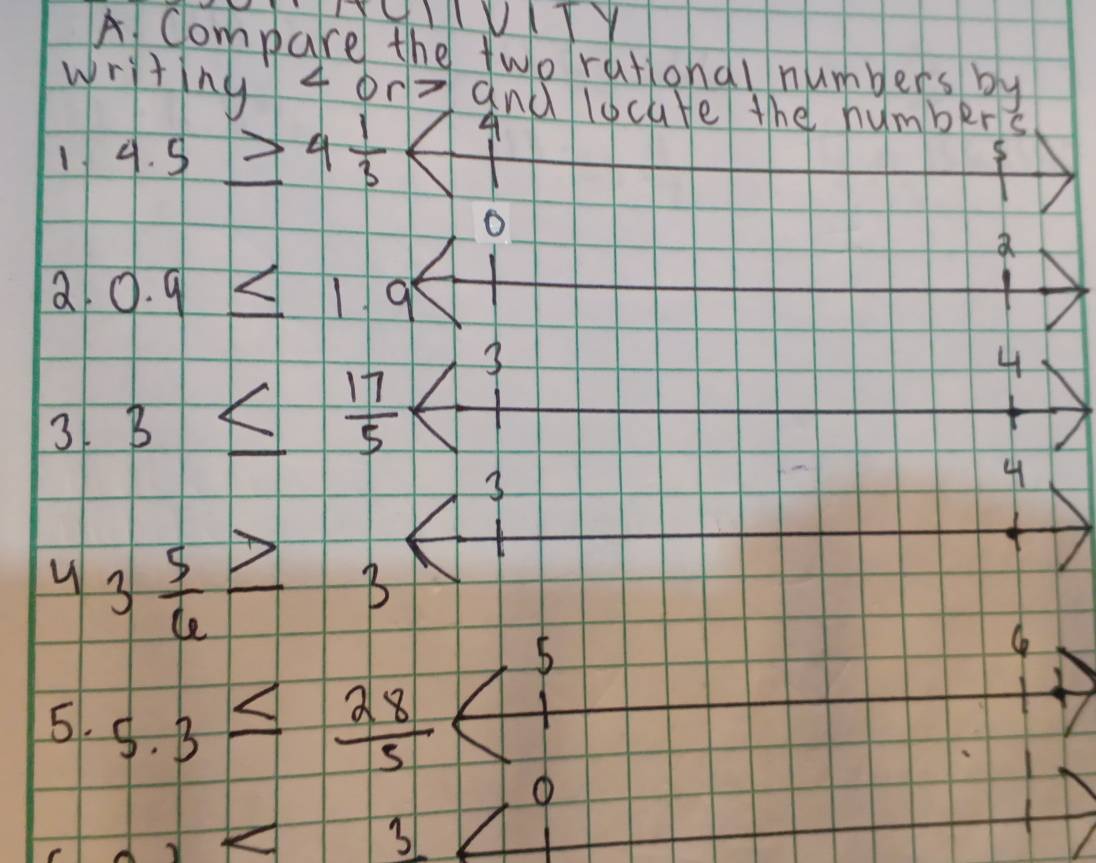 ACTIVITY
A. Compare the two rational numbers by
writing < or > and locate the numbers
1. 4.5 > 4 1/3 4 5
2. 0.9 < 1.9 0 2
3. 3 < 17/5 3 4
4 3 5/6 > 3 3 4
5. 5.3 < 28/5 5 6
< 3 0